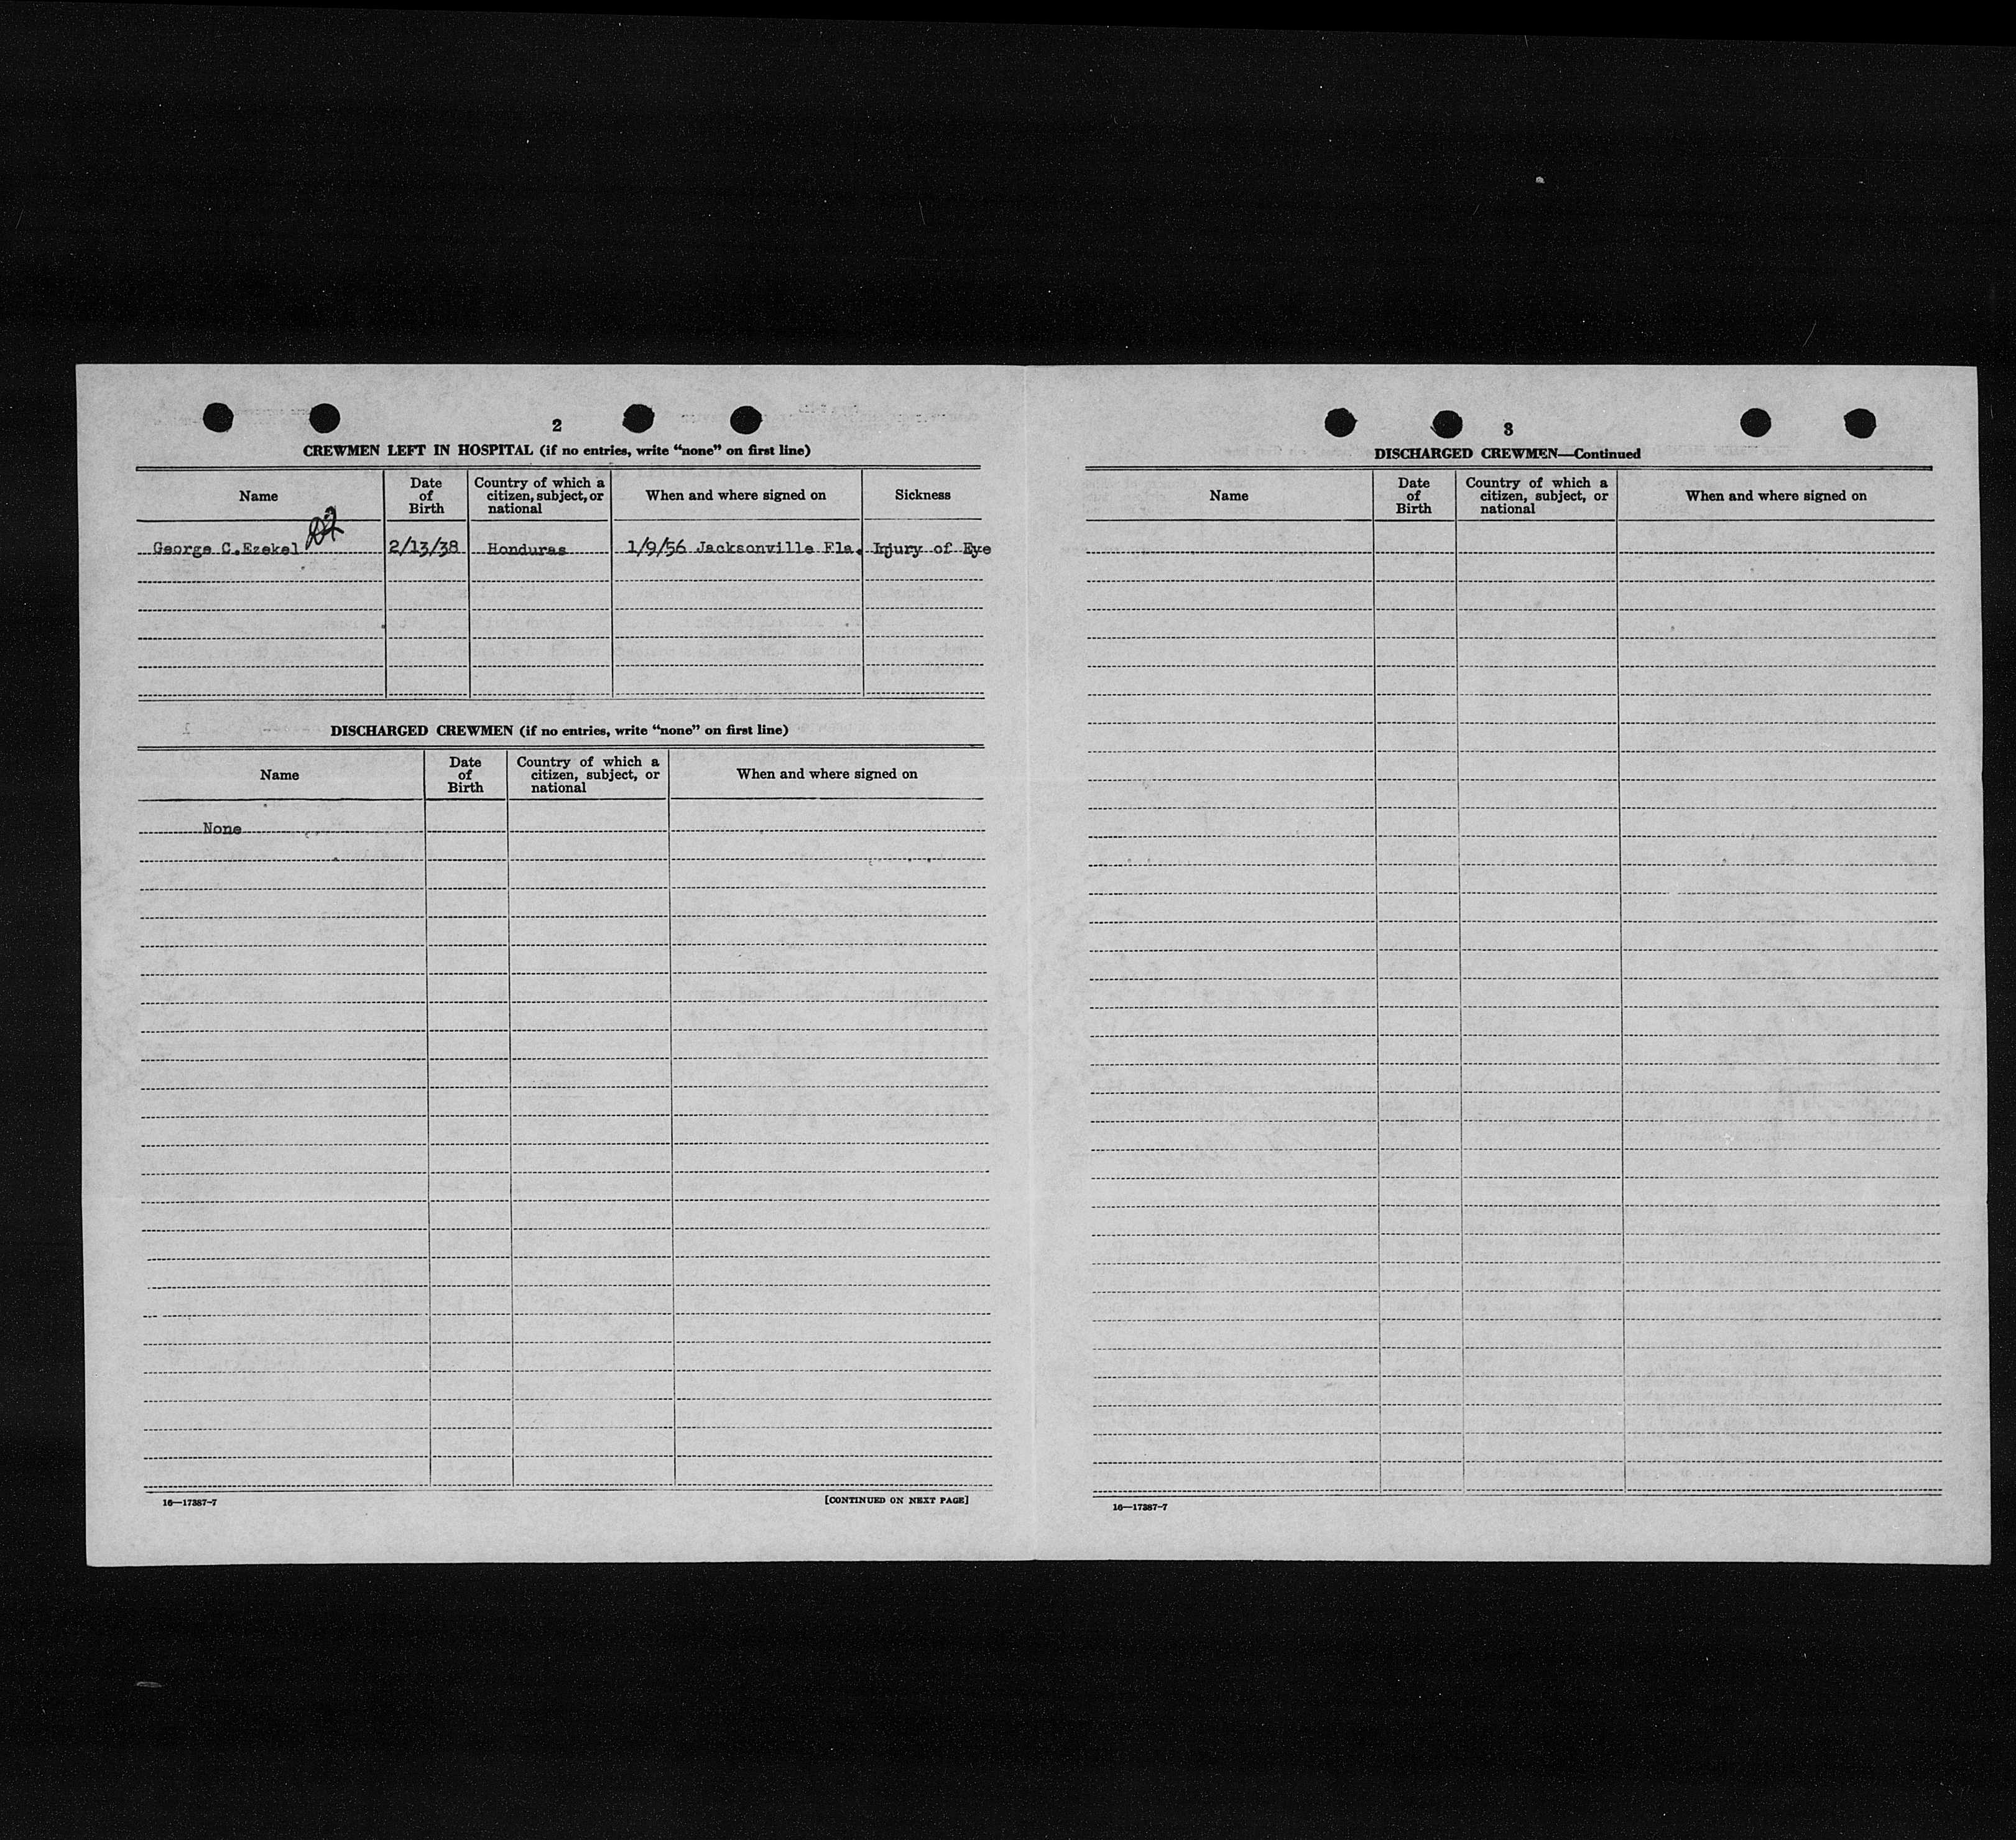 2
CREWMEN LEFT IN HOSPITAL (if no entries, write “none” on first line)
Name
Date of Birth
Country of which a citizen, subject, or national
When and where signed on
Sickness
George C.Ezekel 2/13/38 Honduras 1/9/56 Jacksonville Fla. Injury of Eye
DISCHARGED CREWMEN (if no entries, write “none” on first line)
Name
Date of Birth
Country of which a citizen, subject, or national
When and where signed on
None
16—17387-7
[CONTINUED ON NEXT PAGE]
3
DISCHARGED CREWMEN—Continued
Name
Date of Birth
Country of which a citizen, subject, or national
When and where signed on
16—17387-7